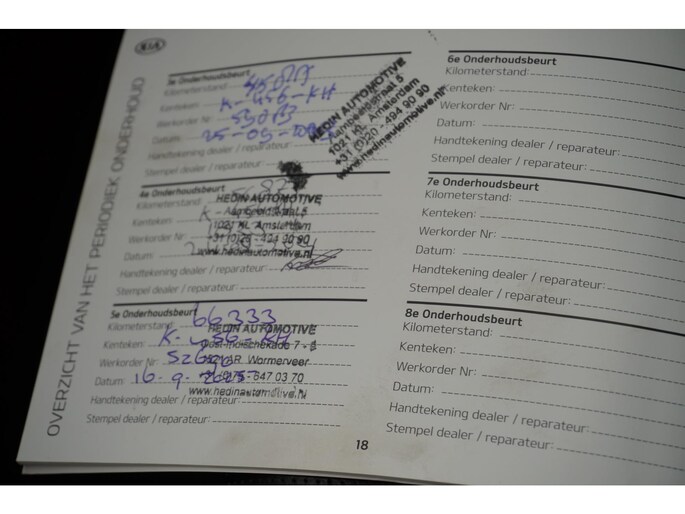 KIA
OVERZICHT VAN HET PERIODIEK ONDERHOUD
3e Onderhoudsbeurt
Kilometerstand:
Kenteken: K-456-KH
Werkorder Nr:
Datum: 25-09-
Handtekening dealer / reparateur:
Stempel dealer / reparateur:
HEDIN AUTOMOTIVE
1021 KL Amsterdam
+31 (0)20 - 494 90 90
www.hedinautomotive.nl
4e Onderhoudsbeurt
Kilometerstand
Kenteken K-
Werkorder Nr
Datum:
Handtekening dealer / reparateur:
Stempel dealer / reparateur:
HEDIN AUTOMOTIVE
1021 KL Amsterdam
+31 (0)20 - 494 90 90
www.hedinautomotive.nl
5e Onderhoudsbeurt
Kilometerstand: 66333
Kenteken K-456-KH
Werkorder Nr:
Datum: 16-9-2025
Handtekening dealer / reparateur:
Stempel dealer / reparateur:
HEDIN AUTOMOTIVE
Wormerveer
647 03 70
www.hedinautomotive.nl
6e Onderhoudsbeurt
Kilometerstand:
Kenteken:
Werkorder Nr:
Datum:
Handtekening dealer / reparateur:
Stempel dealer / reparateur:
7e Onderhoudsbeurt
Kilometerstand:
Kenteken:
Werkorder Nr:
Datum:
Handtekening dealer / reparateur:
Stempel dealer / reparateur:
8e Onderhoudsbeurt
Kilometerstand:
Kenteken:
Werkorder Nr:
Datum:
Handtekening dealer / reparateur:
Stempel dealer / reparateur:
18